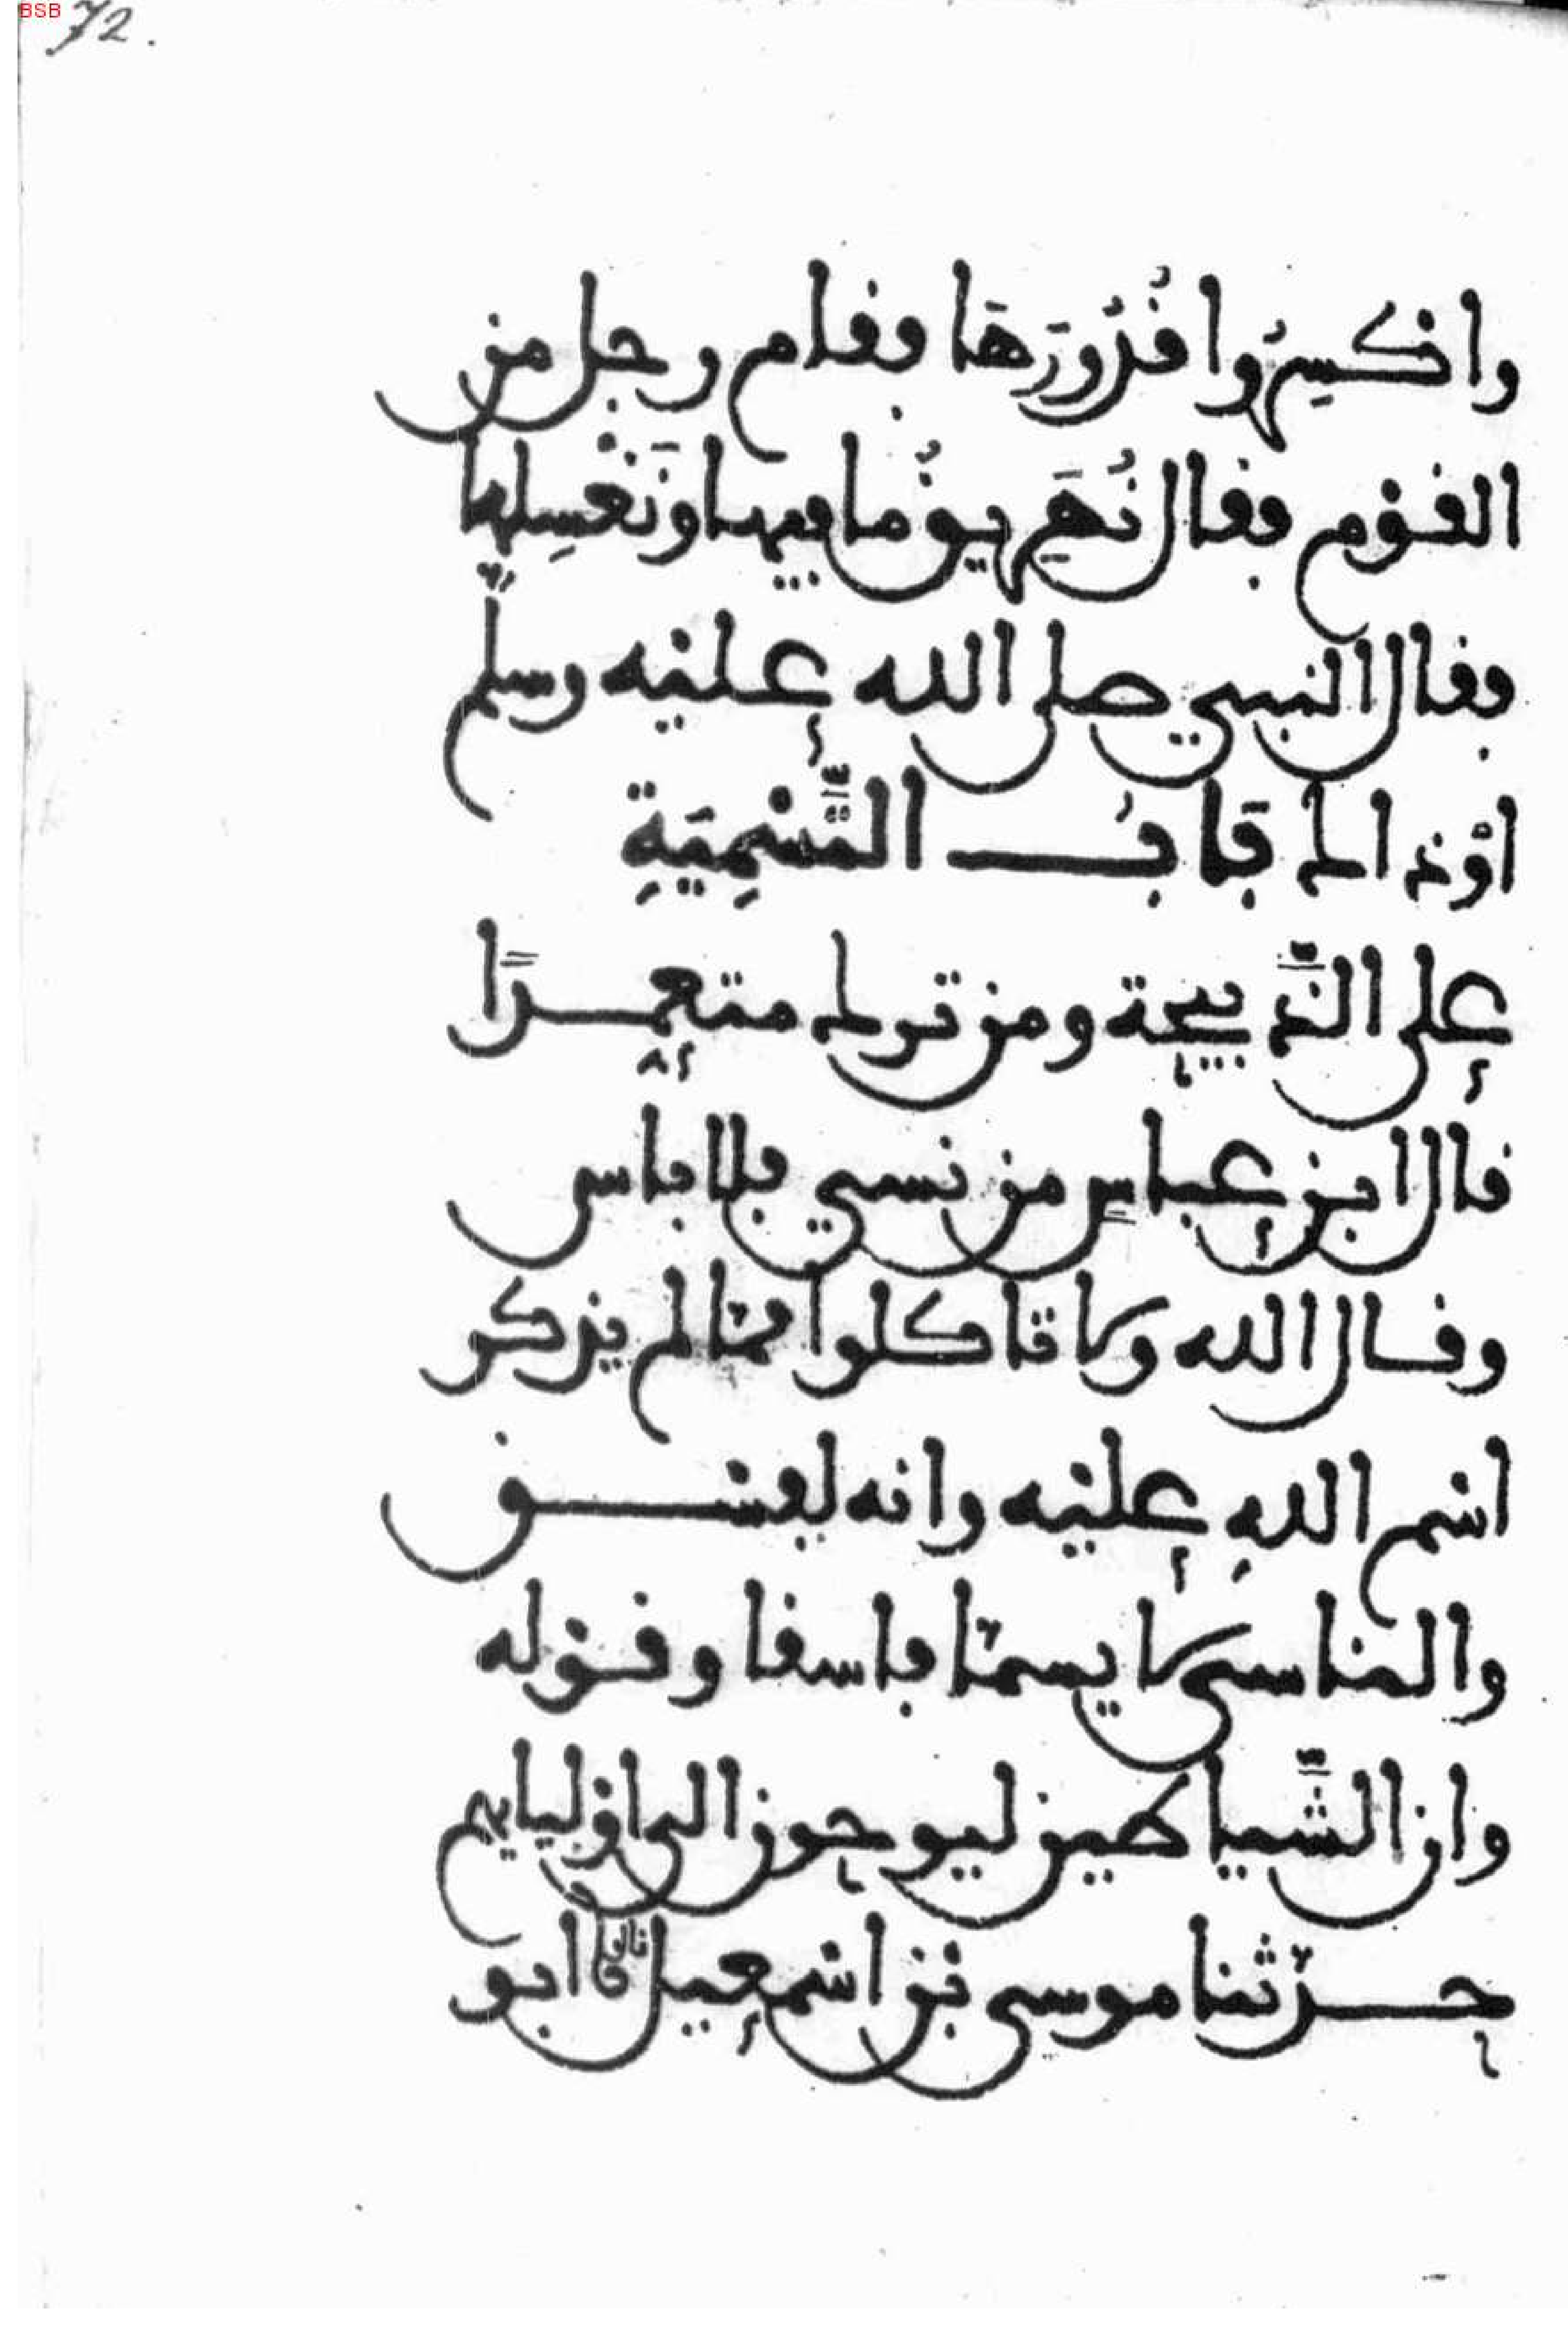 BSB
72.
واكسِرُوا قُدُورَهَا فقام رجل من
القوم فقال نُهَرِيقُ ما فيها ونَغْسِلها
فقال النبي صلى الله عليه وسلم
اوْ ذاك بَابُ التَّسْمِيَةِ
على الذَّبيحة ومن ترك متعمدًا
قال ابن عباسٍ من نسي فلا باس
وقال الله ولا تاكلوا ممّا لم يذكر
اسم اللهِ عليه وانه لفسق
والناسي لا يسمّا فاسقا وقوله
وان الشَّياطين ليوحون الى اوليايهم
حدّثنا موسى بن اسمعيل قال نا ابو